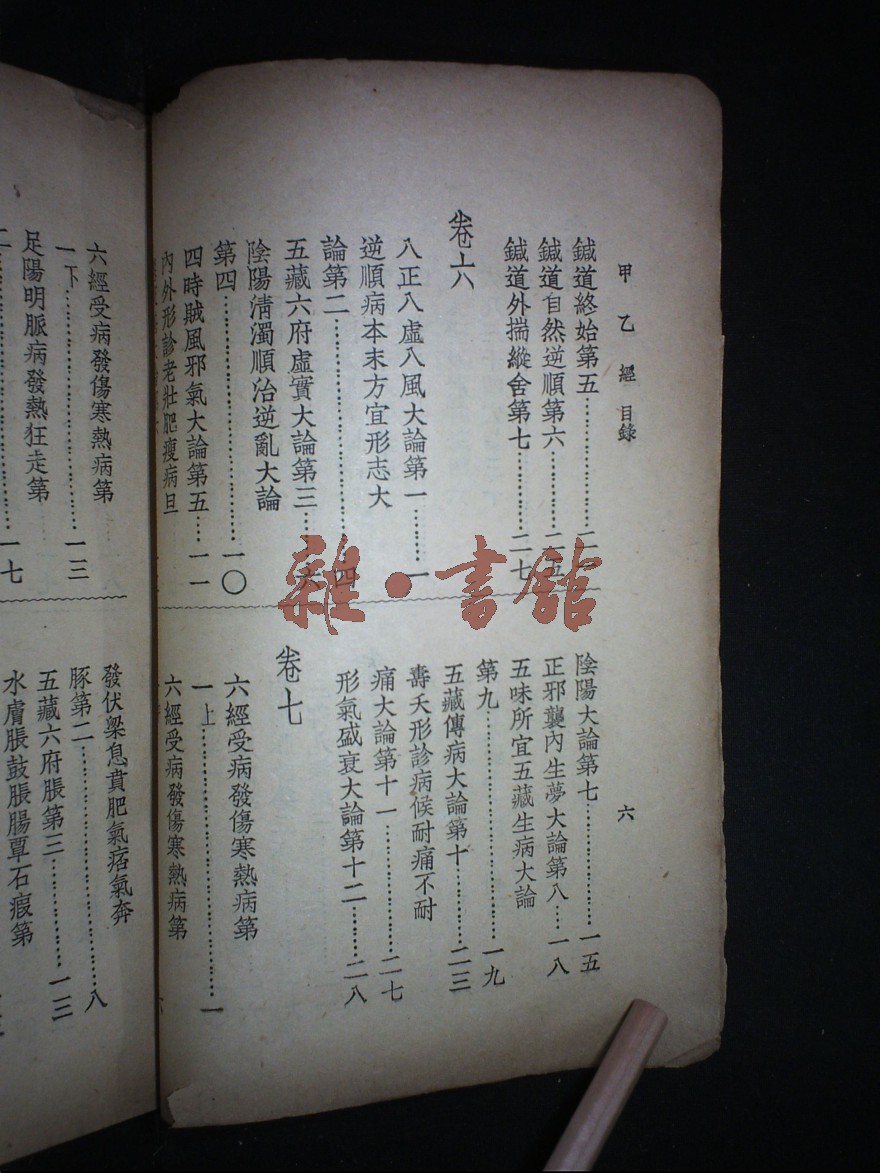 甲乙經 目錄
六
鍼道終始第五
鍼道自然逆順第六…………二五
鍼道外揣縱舍第七…………二七
卷六
八正八虛八風大論第一………一
逆順病本末方宜形志大
論第二…………四
五藏六府虛實大論第三……六
陰陽清濁順治逆亂大論
第四…………一〇
四時賊風邪氣大論第五…一一
內外形診老壯肥瘦病旦
陰陽大論第七…………一五
正邪襲內生夢大論第八…一八
五味所宜五藏生病大論
第九…………一九
五藏傳病大論第十………二三
壽夭形診病候耐痛不耐
痛大論第十一…………二七
形氣盛衰大論第十二……二八
卷七
六經受病發傷寒熱病第
一上…………一
六經受病發傷寒熱病第
六經受病發傷寒熱病第
一下…………一三
足陽明脈病發熱狂走第
二…………一七
發伏梁息賁肥氣痞氣奔
豚第二…………八
五藏六府脹第三…………一三
水膚脹鼓脹腸覃石瘕第
雜·書館